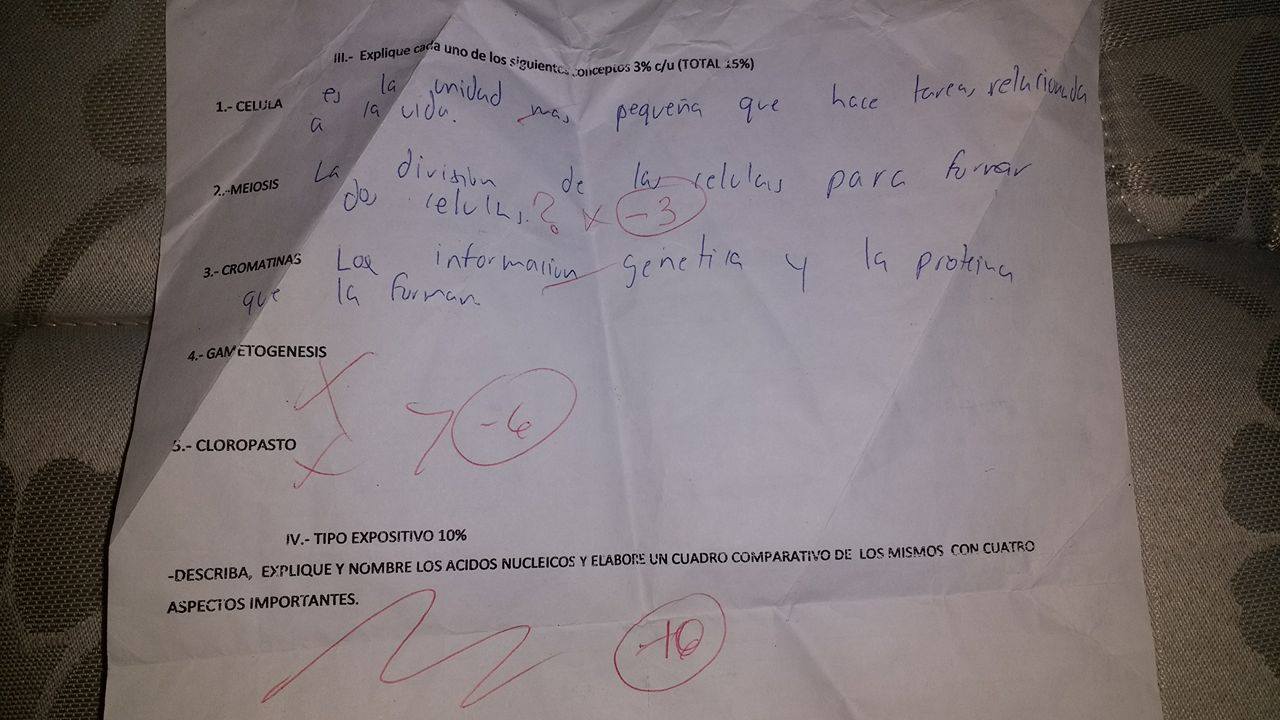 III.- Explique cada uno de los siguientes conceptos 3% c/u (TOTAL 15%)
1.- CELULA es la unidad mas pequeña que hace tareas relacionada
a la vida.
2.-MEIOSIS La división de las celulas para formar
dos celulas. ? x -3
3.- CROMATINAS Los información genetica y la proteina
que la forman.
4.- GAMETOGENESIS
-6
5.- CLOROPASTO
IV.- TIPO EXPOSITIVO 10%
-DESCRIBA, EXPLIQUE Y NOMBRE LOS ACIDOS NUCLEICOS Y ELABORE UN CUADRO COMPARATIVO DE LOS MISMOS CON CUATRO
ASPECTOS IMPORTANTES.
-10